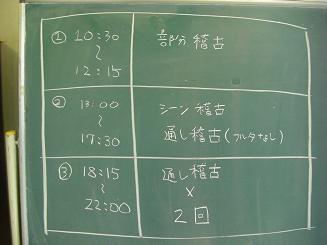 ① 10:30
〜
12:15
部分 稽古
② 13:00
〜
17:30
シーン 稽古
通し稽古(フルタなし)
③ 18:15
〜
22:00
通し稽古
×
2回